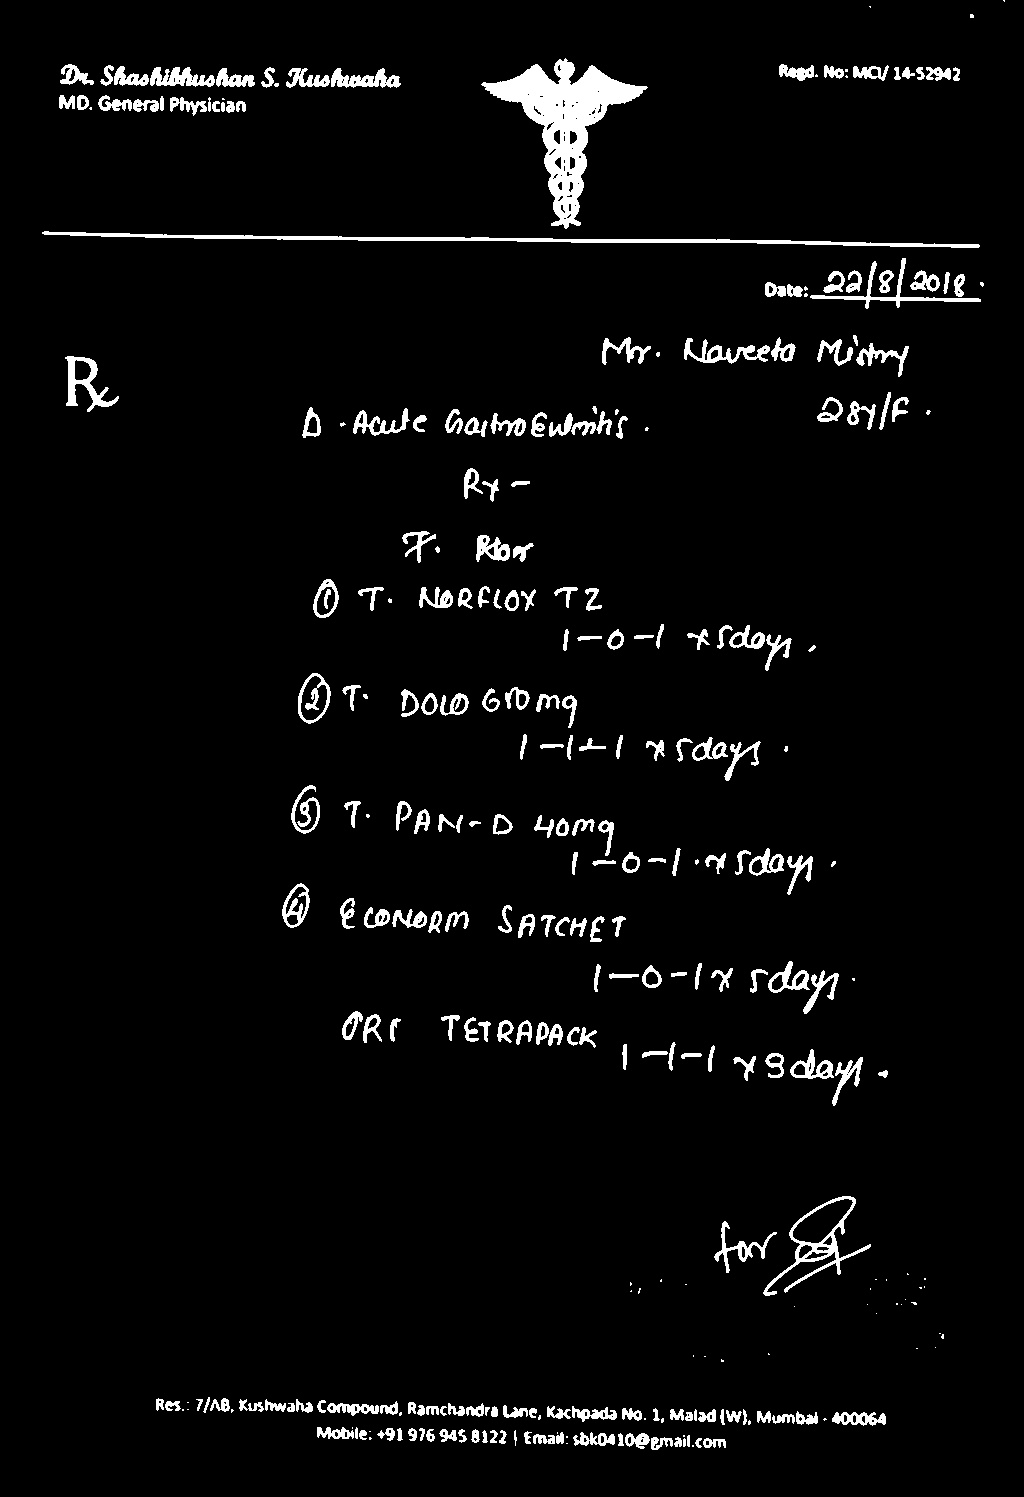 Dr. Shashibhushan S. Kushwaha
MD. General Physician
Regd. No: MCI/ 14-52942
Date: 22/8/2018
Mr. Naveeta Mistry
28y/F
Rx
Δ - Acute
Rx -
① T. NORFLOX TZ
1-0-1 x 5days.
② T. DOLO 650mg
1-1-1 x 5days.
③ T. PAN-D 40mg
1-0-1 x 5days.
④ ECONORM SATCHET
1-0-1 x 5days.
ORS TETRAPACK
1-1-1 x 3days.
for
Res.: 7/AB, Kushwaha Compound, Ramchandra Lane, Kachpada No. 1, Malad (W), Mumbai - 400064
Mobile: +91 976 945 8122 | Email: sbk0410@gmail.com